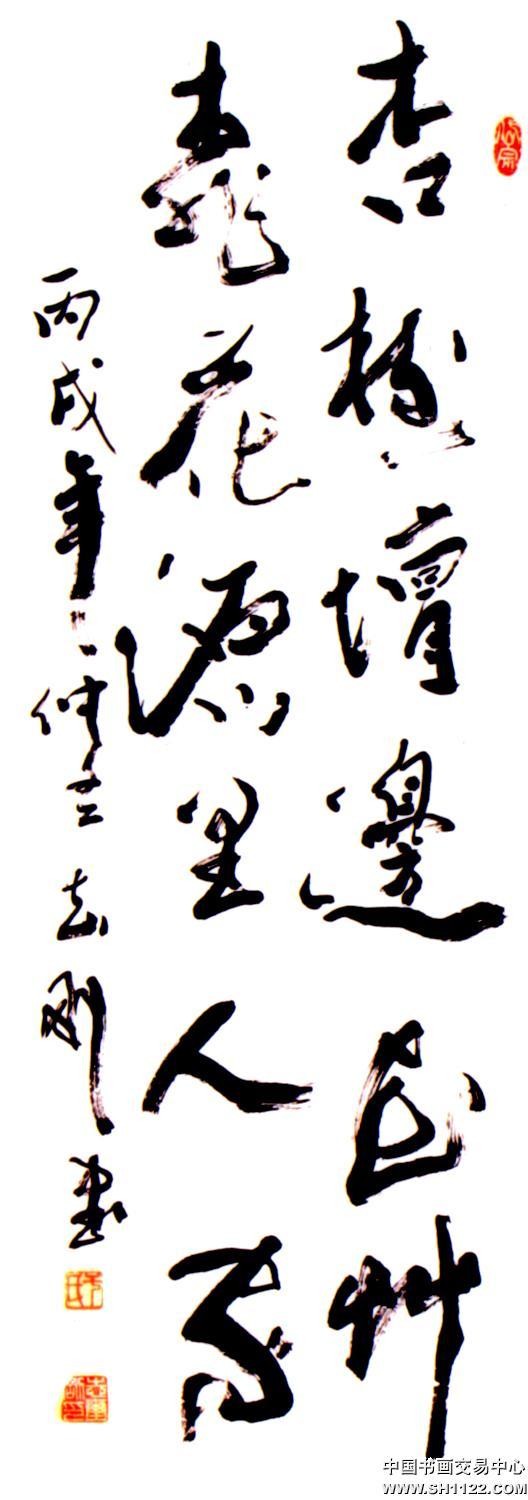 杏樹壇邊艸
桃花源里人家
丙戌年仲志刚書
中国书画交易中心
WWW.SH1122.COM